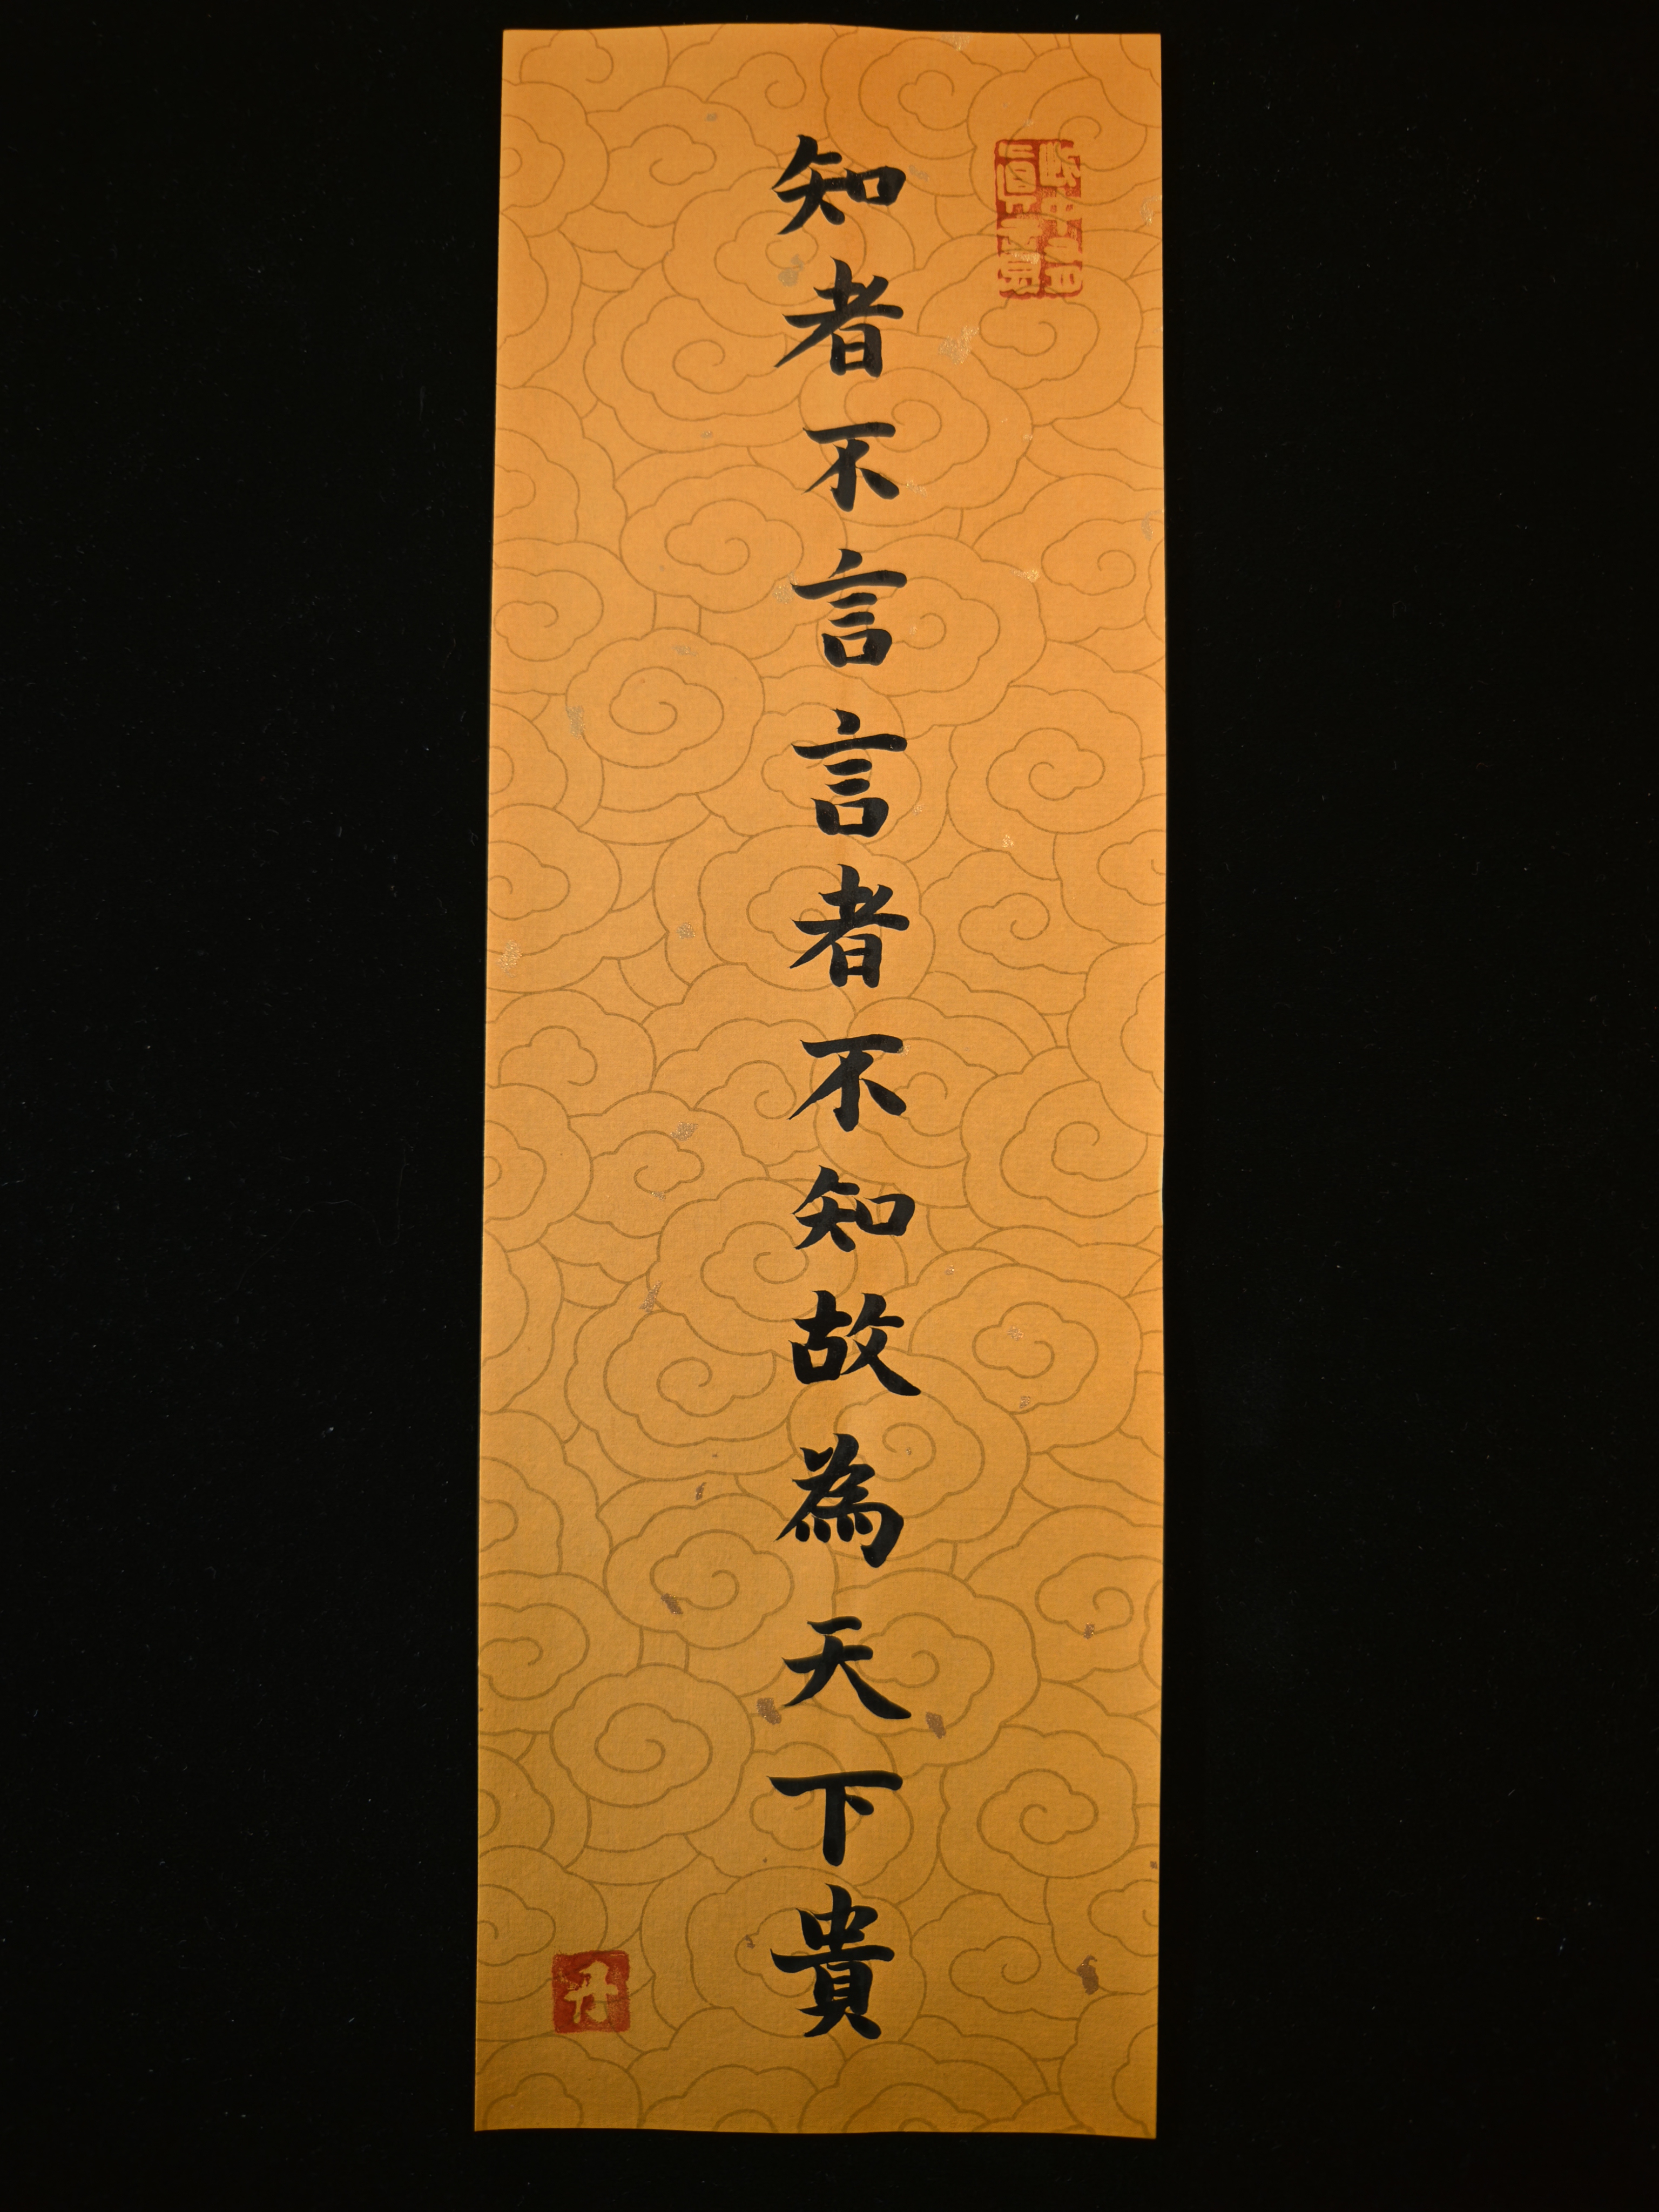 知者不言言者不知故為天下貴
丹